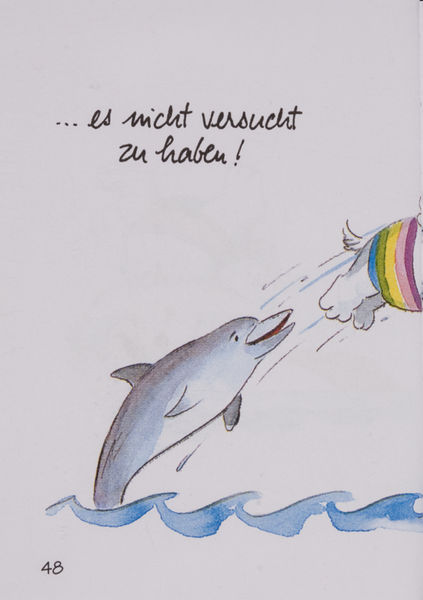 ... es nicht versucht
zu haben!
48